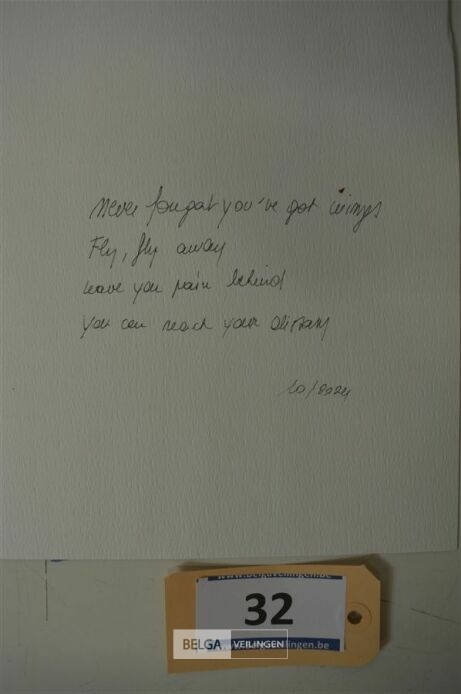 Never forgat you've got wings
Fly, fly away
leave you pain behind
you can reach your
10/2024
www.belgaveilingen.be
32
BELGA VEILINGEN